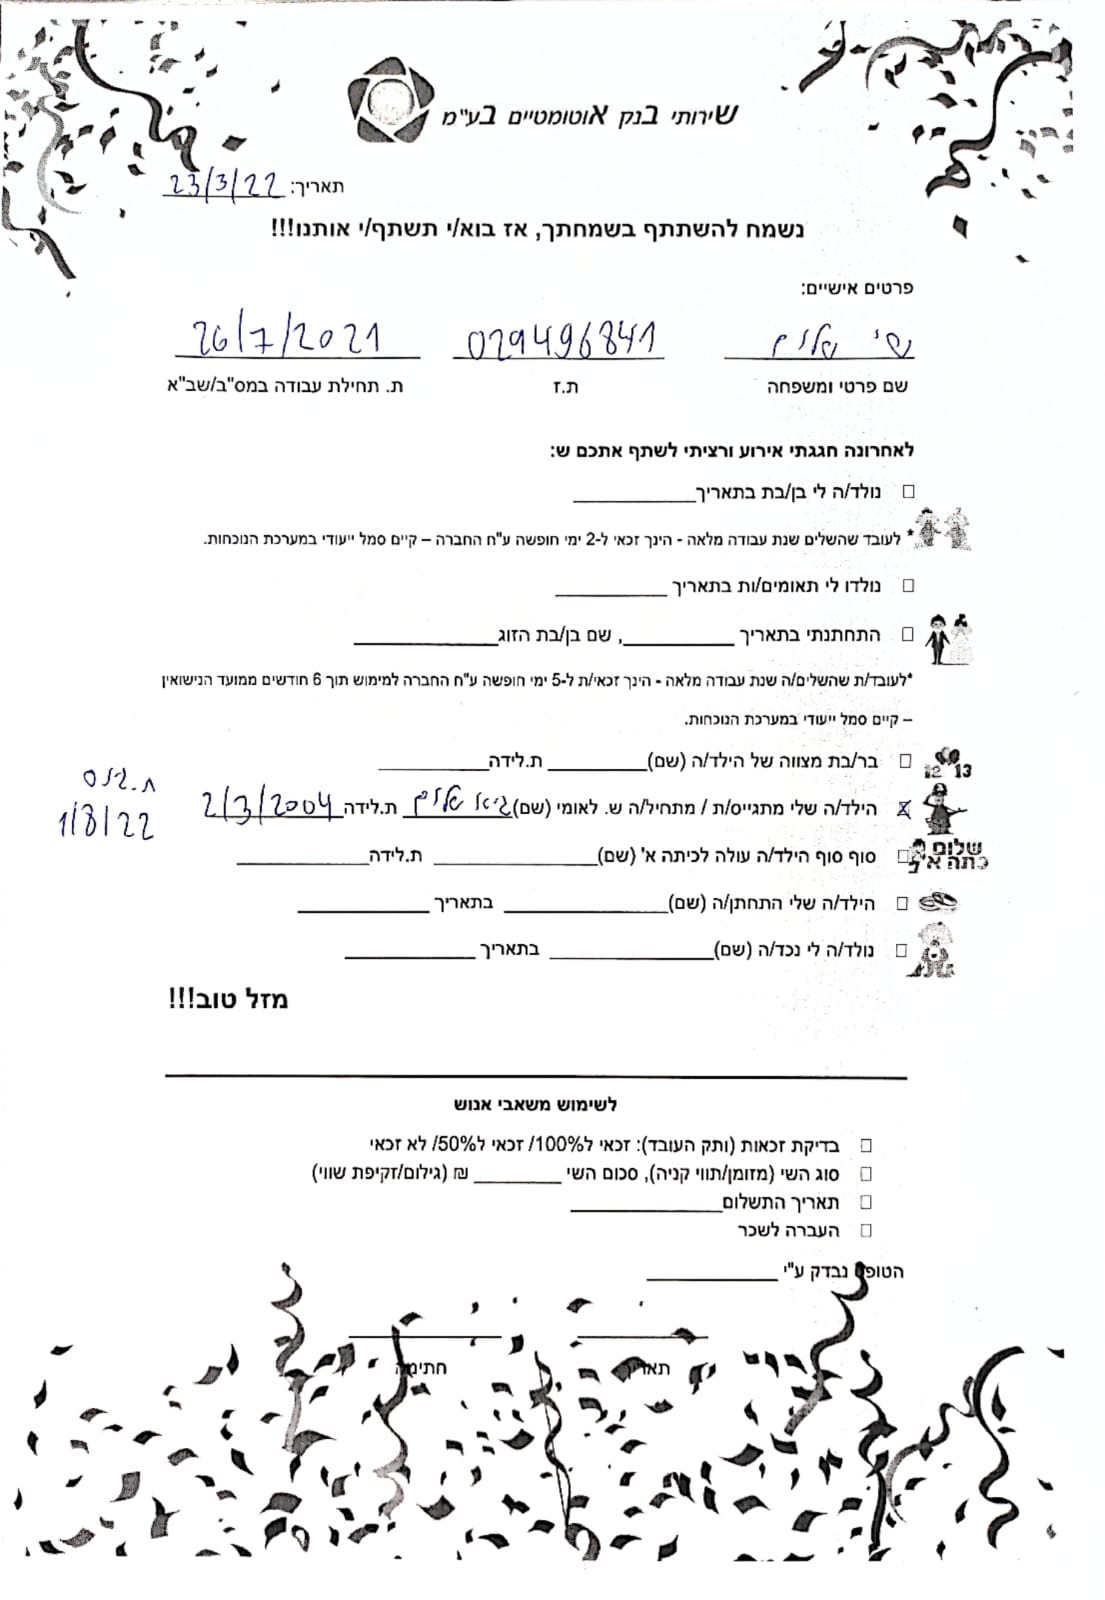 שירותי בנק אוטומטיים בע"מ
תאריך: 23/3/22
נשמח להשתתף בשמחתך, אז בוא/י תשתף/י אותנו!!!
פרטים אישיים:
שי שלום 029496841 26/7/2021
שם פרטי ומשפחה ת.ז ת. תחילת עבודה במס"ב/שב"א
לאחרונה חגגתי אירוע ורציתי לשתף אתכם ש:
נולד/ה לי בן/בת בתאריך
* לעובד שהשלים שנת עבודה מלאה - הינך זכאי ל-2 ימי חופשה ע"ח החברה – קיים סמל ייעודי במערכת הנוכחות.
נולדו לי תאומים/ות בתאריך
התחתנתי בתאריך , שם בן/בת הזוג
*לעובד/ת שהשלים/ה שנת עבודה מלאה - הינך זכאי/ת ל-5 ימי חופשה ע"ח החברה למימוש תוך 6 חודשים ממועד הנישואין
– קיים סמל ייעודי במערכת הנוכחות.
בר/בת מצווה של הילד/ה (שם) ת.לידה
12 13
ת. גיוס
הילד/ה שלי מתגייס/ת / מתחיל/ה ש. לאומי (שם) גיא שלום ת.לידה 2/3/2004
1/8/22
שלום כתה א'
סוף סוף הילד/ה עולה לכיתה א' (שם) ת.לידה
הילד/ה שלי התחתן/ה (שם) בתאריך
נולד/ה לי נכד/ה (שם) בתאריך
מזל טוב!!!
לשימוש משאבי אנוש
בדיקת זכאות (ותק העובד): זכאי ל100%/ זכאי ל50%/ לא זכאי
סוג השי (מזומן/תווי קניה), סכום השי ₪ (גילום/זקיפת שווי)
תאריך התשלום
העברה לשכר
הטופס נבדק ע"י
תאריך חתימה